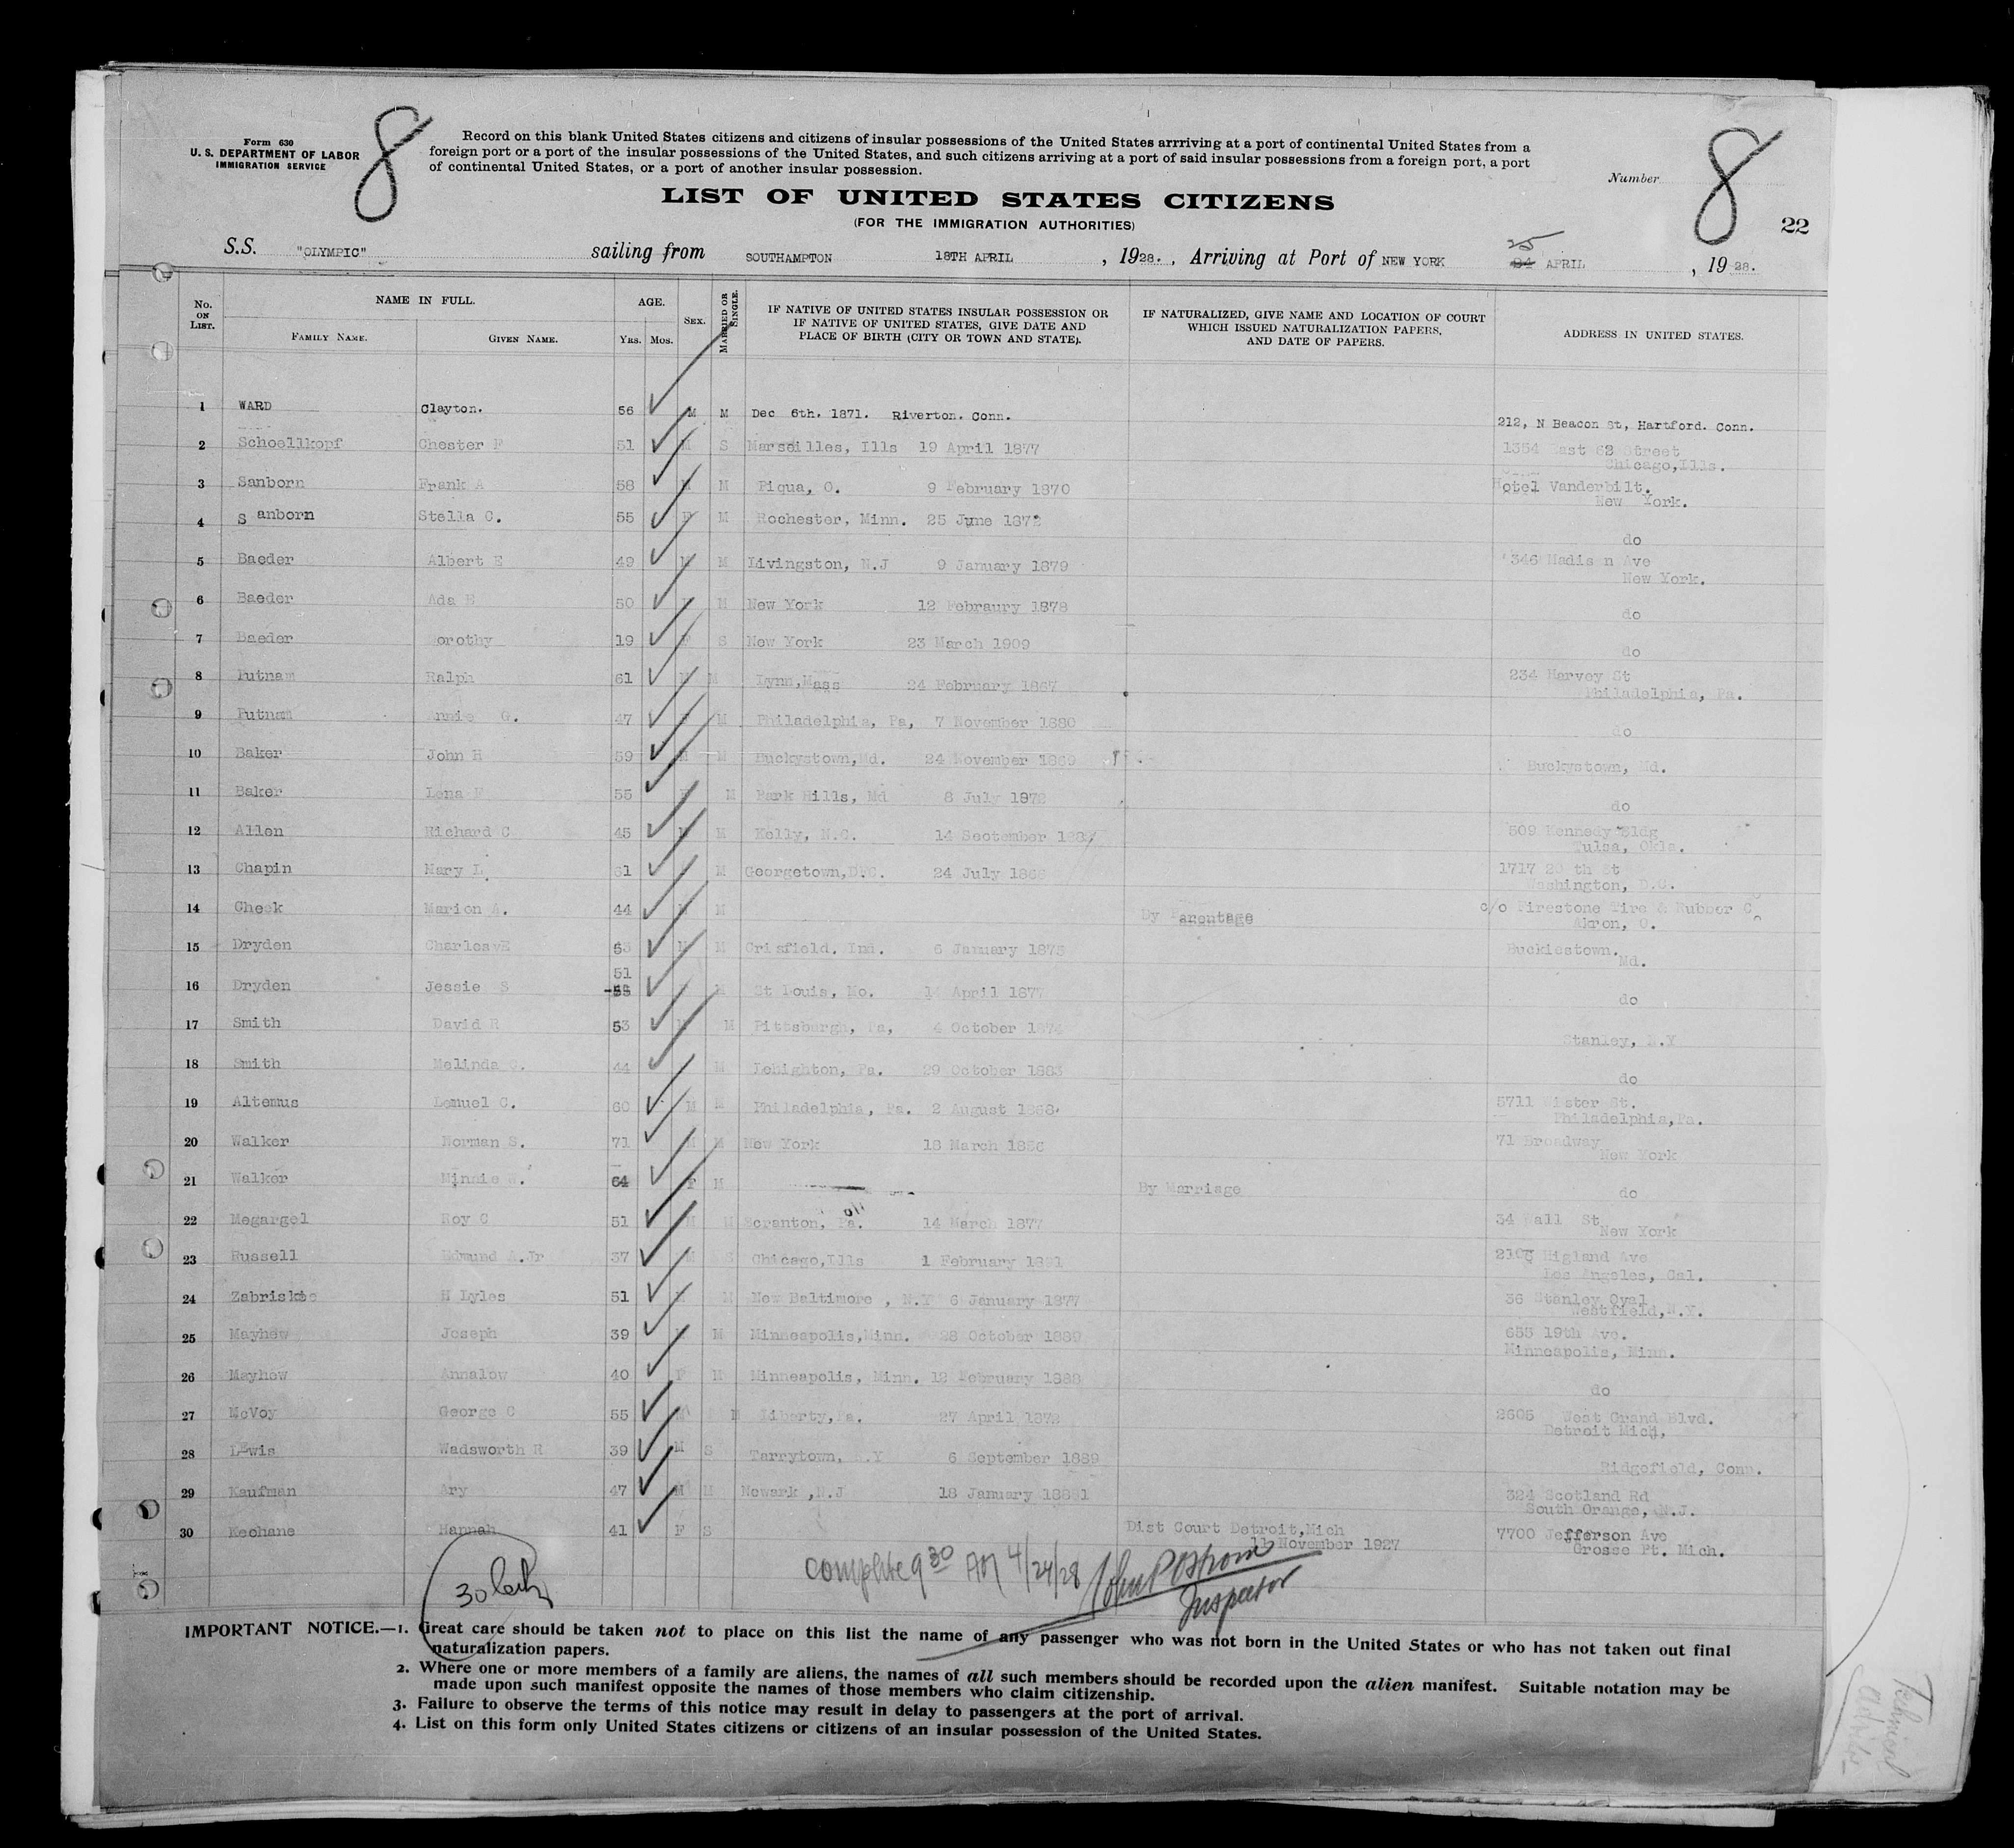 Form 630
U. S. DEPARTMENT OF LABOR
IMMIGRATION SERVICE
8
Record on this blank United States citizens and citizens of insular possessions of the United States arrriving at a port of continental United States from a
foreign port or a port of the insular possessions of the United States, and such citizens arriving at a port of said insular possessions from a foreign port, a port
of continental United States, or a port of another insular possession.
Number
8
22
LIST OF UNITED STATES CITIZENS
(FOR THE IMMIGRATION AUTHORITIES)
S.S. "OLYMPIC" sailing from SOUTHAMPTON 18TH APRIL, 1928., Arriving at Port of NEW YORK 25 APRIL, 1928.
No. ON LIST. NAME IN FULL. FAMILY NAME. GIVEN NAME. AGE. YRS. MOS. SEX. MARRIED OR SINGLE. IF NATIVE OF UNITED STATES INSULAR POSSESSION OR IF NATIVE OF UNITED STATES, GIVE DATE AND PLACE OF BIRTH (CITY OR TOWN AND STATE). IF NATURALIZED, GIVE NAME AND LOCATION OF COURT WHICH ISSUED NATURALIZATION PAPERS, AND DATE OF PAPERS. ADDRESS IN UNITED STATES.
1 WARD Clayton. 56 M M Dec 6th. 1871. Riverton. Conn. 212, N Beacon St, Hartford. Conn.
2 Schoellkopf Chester F 51 M S Marseilles, Ills 19 April 1877 1354 East 62 Street
Chicago, Ills.
3 Sanborn Frank A 58 M M Piqua, O. 9 February 1870 Hotel Vanderbilt.
New York.
4 Sanborn Stella C. 55 F M Rochester, Minn. 25 June 1872 do
5 Baeder Albert E 49 M M Livingston, N.J 9 January 1879 346 Madis n Ave
New York.
6 Baeder Ada E 50 M New York 12 Febraury 1878 do
7 Baeder Dorothy 19 F S New York 23 March 1909 do
8 Putnam Ralph 61 M M Lynn, Mass 24 February 1867 234 Harvey St
Philadelphia, Pa.
9 Putnam Annie G. 47 F M Philadelphia, Pa, 7 November 1880 do
10 Baker John H 59 M M Buckystown, Md. 24 November 1869 Buckystown, Md.
11 Baker Lena F 55 F M Park Hills, Md 8 July 1872 do
12 Allen Richard C 45 M M Kelly, N.C. 14 September 509 Kennedy Bldg
Tulsa, Okla.
13 Chapin Mary L 61 M Georgetown, D.C. 24 July 1866 1717 20 th St
Washington, D.C.
14 Cheek Marion A. 44 M M By Parentage c/o Firestone Tire & Rubber Co
Akron, O.
15 Dryden Charles E 53 M M Crisfield. Ind. 6 January 1875 Buckiestown.
Md.
16 Dryden Jessie S 51 M St Louis, Mo. 14 April 1877 do
17 Smith David R 53 M M Pittsburgh, Pa, 4 October 1874 Stanley, N.Y
18 Smith Melinda 44 M Lehighton, Pa. 29 October 1883 do
19 Altemus Lemuel C. 60 M M Philadelphia, Pa. 2 August 1868. 5711 Wister St.
Philadelphia, Pa.
20 Walker Norman S. 71 M M New York 18 March 1856 71 Broadway
New York
21 Walker Minnie 64 F M By Marriage do
22 Megargel Roy C 51 M M Scranton, Pa. 14 March 1877 34 Wall St
New York
23 Russell Edmund A.Jr 37 M S Chicago, Ills 1 February 1891 Higland Ave
Los Angeles, Cal.
24 Zabriskie H Lyles 51 M New Baltimore, N.Y 6 January 1877 36 Stanley Oval
Westfield, N.Y.
25 Mayhew Joseph 39 M Minneapolis, Minn. 28 October 1889 655 19th Ave.
Minneapolis, Minn.
26 Mayhew Annalow 40 F M Minneapolis, Minn. 12 February 1888 do
27 McVoy George C 55 M M Liberty, Pa. 27 April 1872 2605 West Grand Blvd.
Detroit Mich,
28 Lewis Wadsworth R 39 M S Tarrytown, N.Y 6 September 1889 Ridgefield, Conn.
29 Kaufman Ary 47 M M Newark, N.J 18 January 1881 324 Scotland Rd
South Orange, N.J.
30 Keohane Hannah 41 F S Dist Court Detroit, Mich
11 November 1927 7700 Jefferson Ave
Grosse Pt. Mich.
30
complete 9 30 AM 4/24/28
Inspector
IMPORTANT NOTICE.—1. Great care should be taken not to place on this list the name of any passenger who was not born in the United States or who has not taken out final
naturalization papers.
2. Where one or more members of a family are aliens, the names of all such members should be recorded upon the alien manifest. Suitable notation may be
made upon such manifest opposite the names of those members who claim citizenship.
3. Failure to observe the terms of this notice may result in delay to passengers at the port of arrival.
4. List on this form only United States citizens or citizens of an insular possession of the United States.